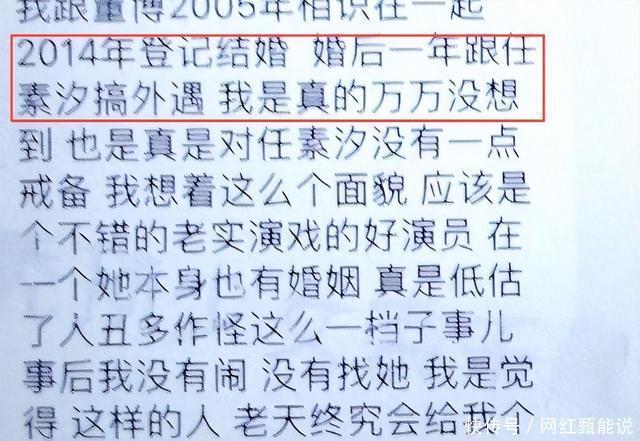 我跟董博2005年相识在一起
2014年登记结婚 婚后一年跟任
素汐搞外遇 我是真的万万没想
到 也是真是对任素汐没有一点
戒备 我想着这么个面貌 应该是
个不错的老实演戏的好演员 在
一个她本身也有婚姻 真是低估
了人丑多作怪这么一档子事儿
事后我没有闹 没有找她 我是觉
得 这样的人 老天终究会给我个
快传号/网红甄能说